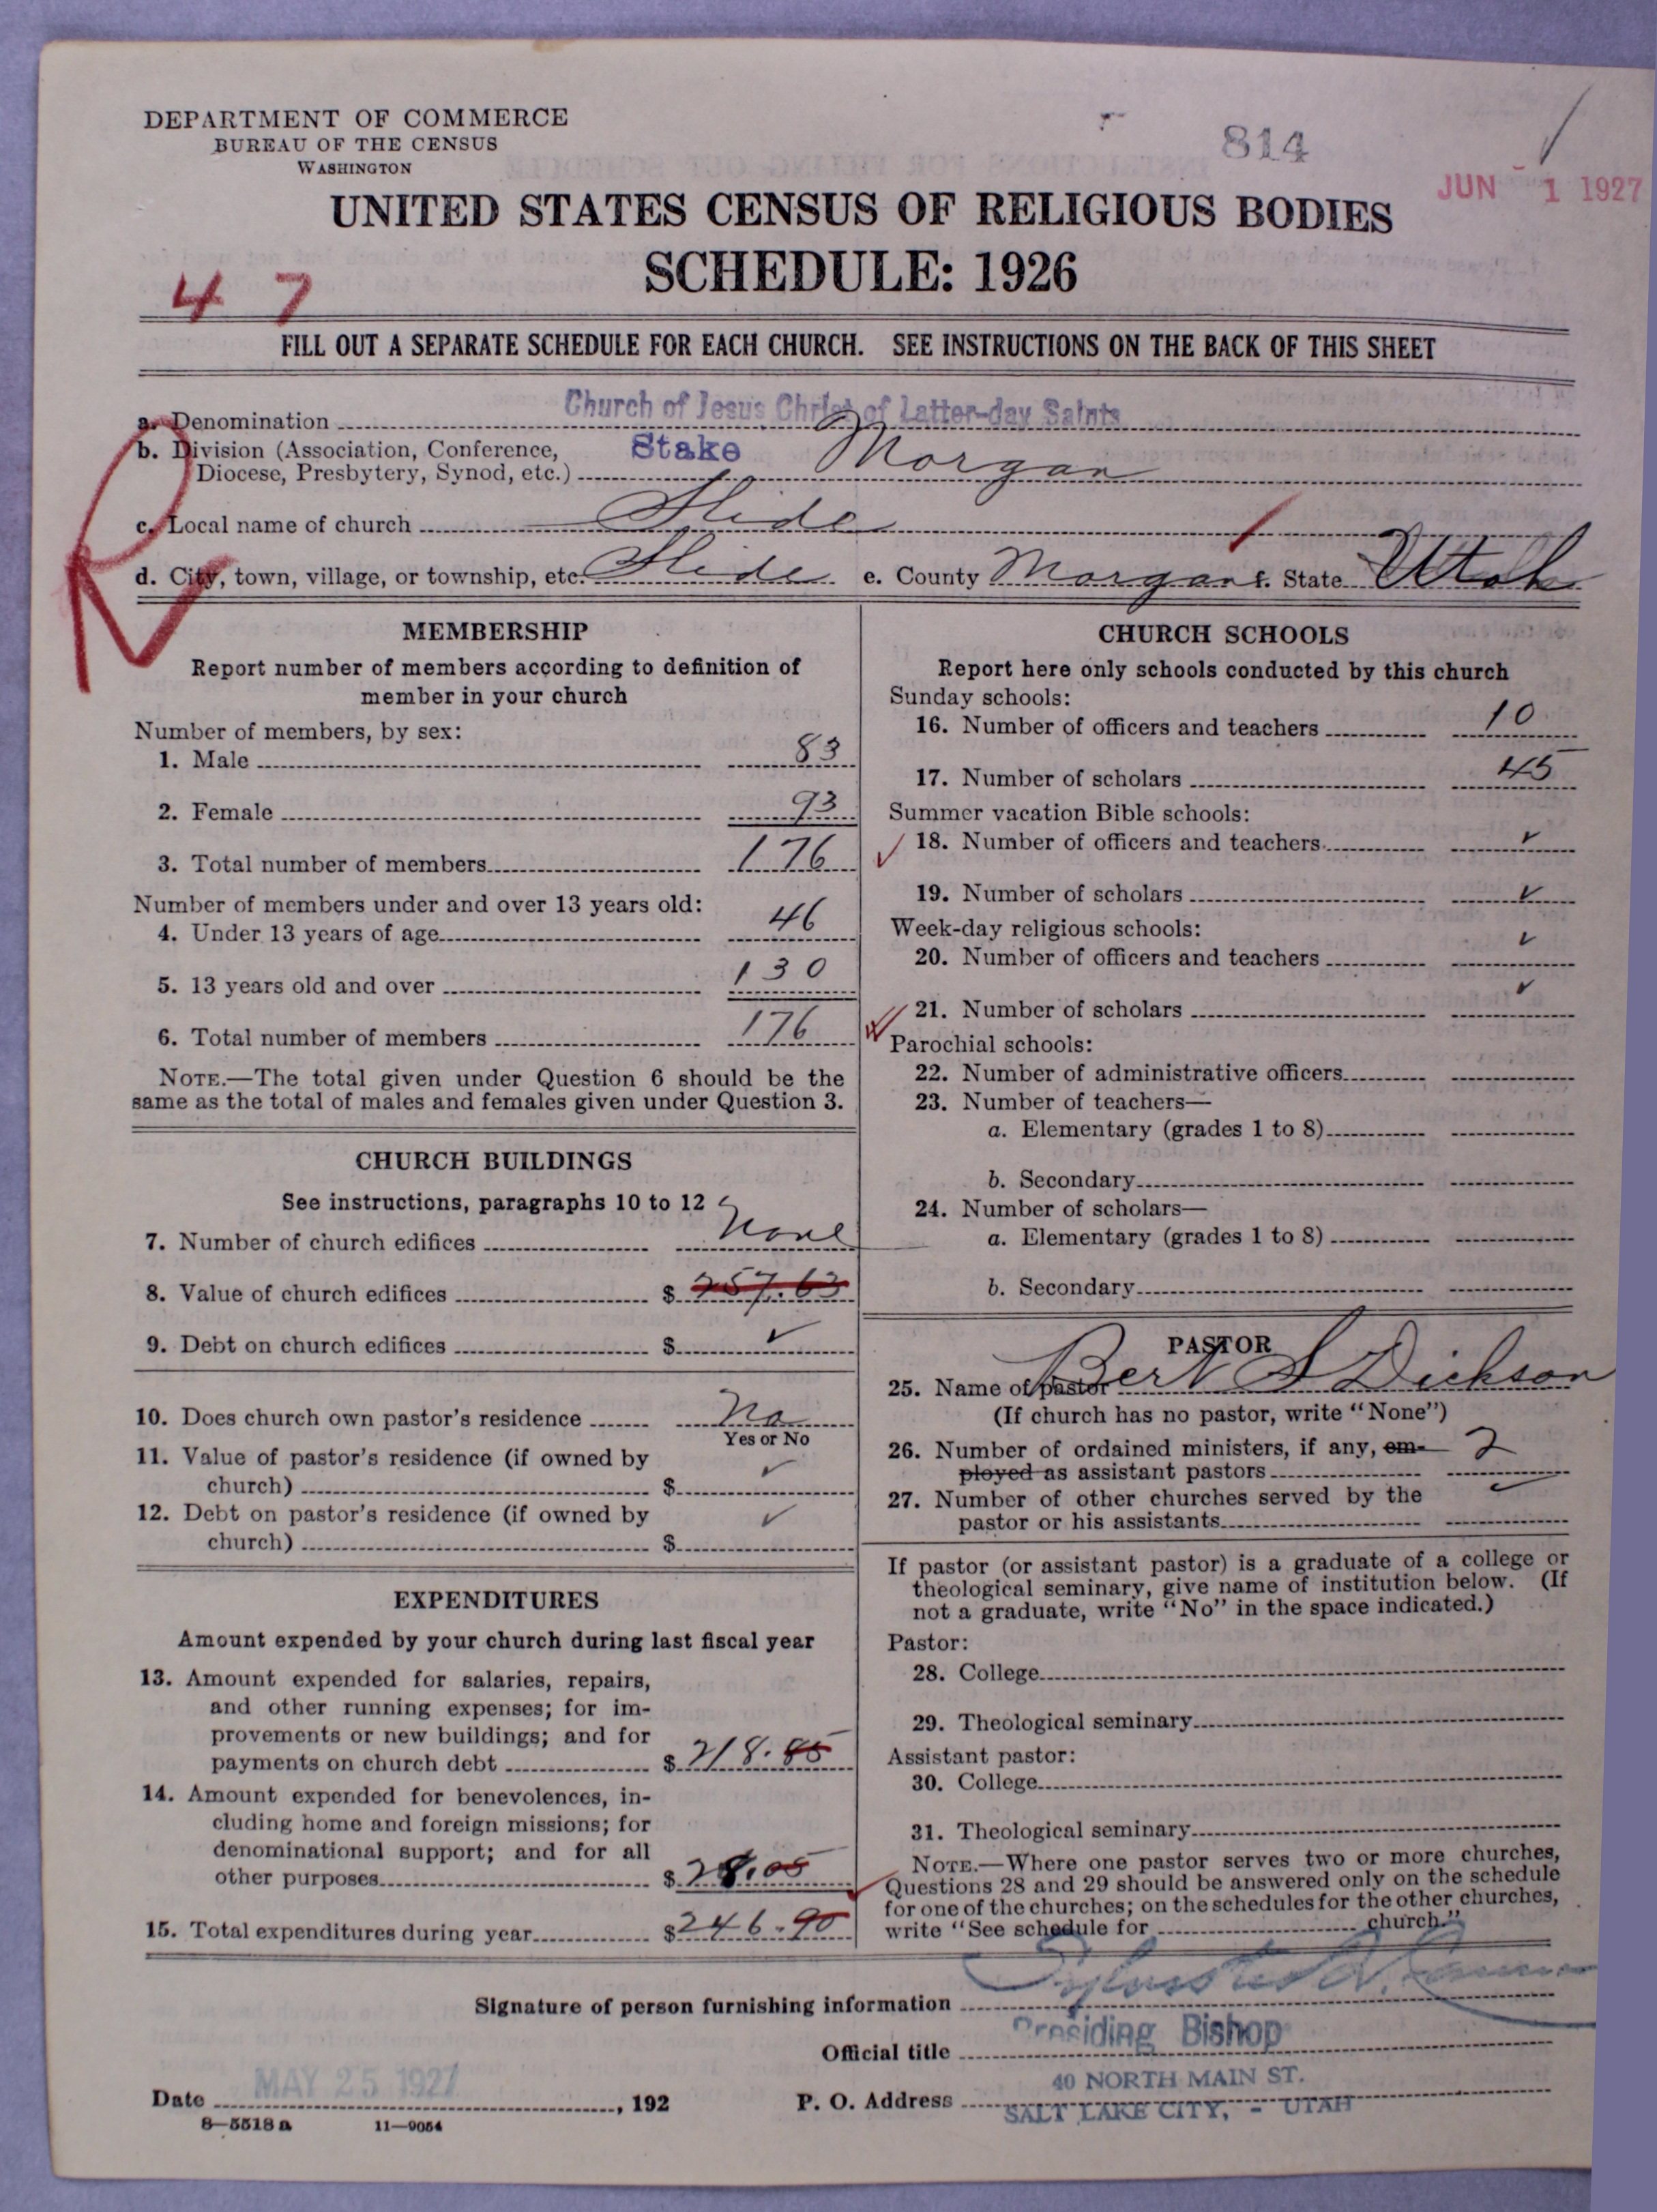 DEPARTMENT OF COMMERCE
BUREAU OF THE CENSUS
WASHINGTON
814
JUN 1 1927
UNITED STATES CENSUS OF RELIGIOUS BODIES
SCHEDULE: 1926
4 7
FILL OUT A SEPARATE SCHEDULE FOR EACH CHURCH. SEE INSTRUCTIONS ON THE BACK OF THIS SHEET
a. Denomination Church of Jesus Christ of Latter-day Saints
b. Division (Association, Conference, Stake Morgan
Diocese, Presbytery, Synod, etc.)
c. Local name of church Slide
d. City, town, village, or township, etc. Slide e. County Morgan f. State Utah
MEMBERSHIP
Report number of members according to definition of
member in your church
Number of members, by sex:
1. Male 83
2. Female 93
3. Total number of members 176
Number of members under and over 13 years old:
4. Under 13 years of age 46
5. 13 years old and over 130
6. Total number of members 176
NOTE.—The total given under Question 6 should be the
same as the total of males and females given under Question 3.
CHURCH BUILDINGS
See instructions, paragraphs 10 to 12
7. Number of church edifices none
8. Value of church edifices $ 257.63
9. Debt on church edifices $ ✓
10. Does church own pastor's residence no
Yes or No
11. Value of pastor's residence (if owned by
church) $ ✓
12. Debt on pastor's residence (if owned by
church) $ ✓
EXPENDITURES
Amount expended by your church during last fiscal year
13. Amount expended for salaries, repairs,
and other running expenses; for im-
provements or new buildings; and for
payments on church debt $ 218.85
14. Amount expended for benevolences, in-
cluding home and foreign missions; for
denominational support; and for all
other purposes $ 28.05
15. Total expenditures during year $ 246.90
CHURCH SCHOOLS
Report here only schools conducted by this church
Sunday schools:
16. Number of officers and teachers 10
17. Number of scholars 45
Summer vacation Bible schools:
18. Number of officers and teachers ✓
19. Number of scholars ✓
Week-day religious schools:
20. Number of officers and teachers ✓
21. Number of scholars ✓
Parochial schools:
22. Number of administrative officers
23. Number of teachers—
a. Elementary (grades 1 to 8)
b. Secondary
24. Number of scholars—
a. Elementary (grades 1 to 8)
b. Secondary
PASTOR
25. Name of pastor Bert S Dickson
(If church has no pastor, write "None")
26. Number of ordained ministers, if any, em- 2
ployed as assistant pastors
27. Number of other churches served by the ✓
pastor or his assistants
If pastor (or assistant pastor) is a graduate of a college or
theological seminary, give name of institution below. (If
not a graduate, write "No" in the space indicated.)
Pastor:
28. College
29. Theological seminary
Assistant pastor:
30. College
31. Theological seminary
NOTE.—Where one pastor serves two or more churches,
Questions 28 and 29 should be answered only on the schedule
for one of the churches; on the schedules for the other churches,
write "See schedule for church."
Signature of person furnishing information
Official title Presiding Bishop
Date MAY 25 1927, 192
P. O. Address 40 NORTH MAIN ST.
SALT LAKE CITY, - UTAH
8—5518a 11—9054